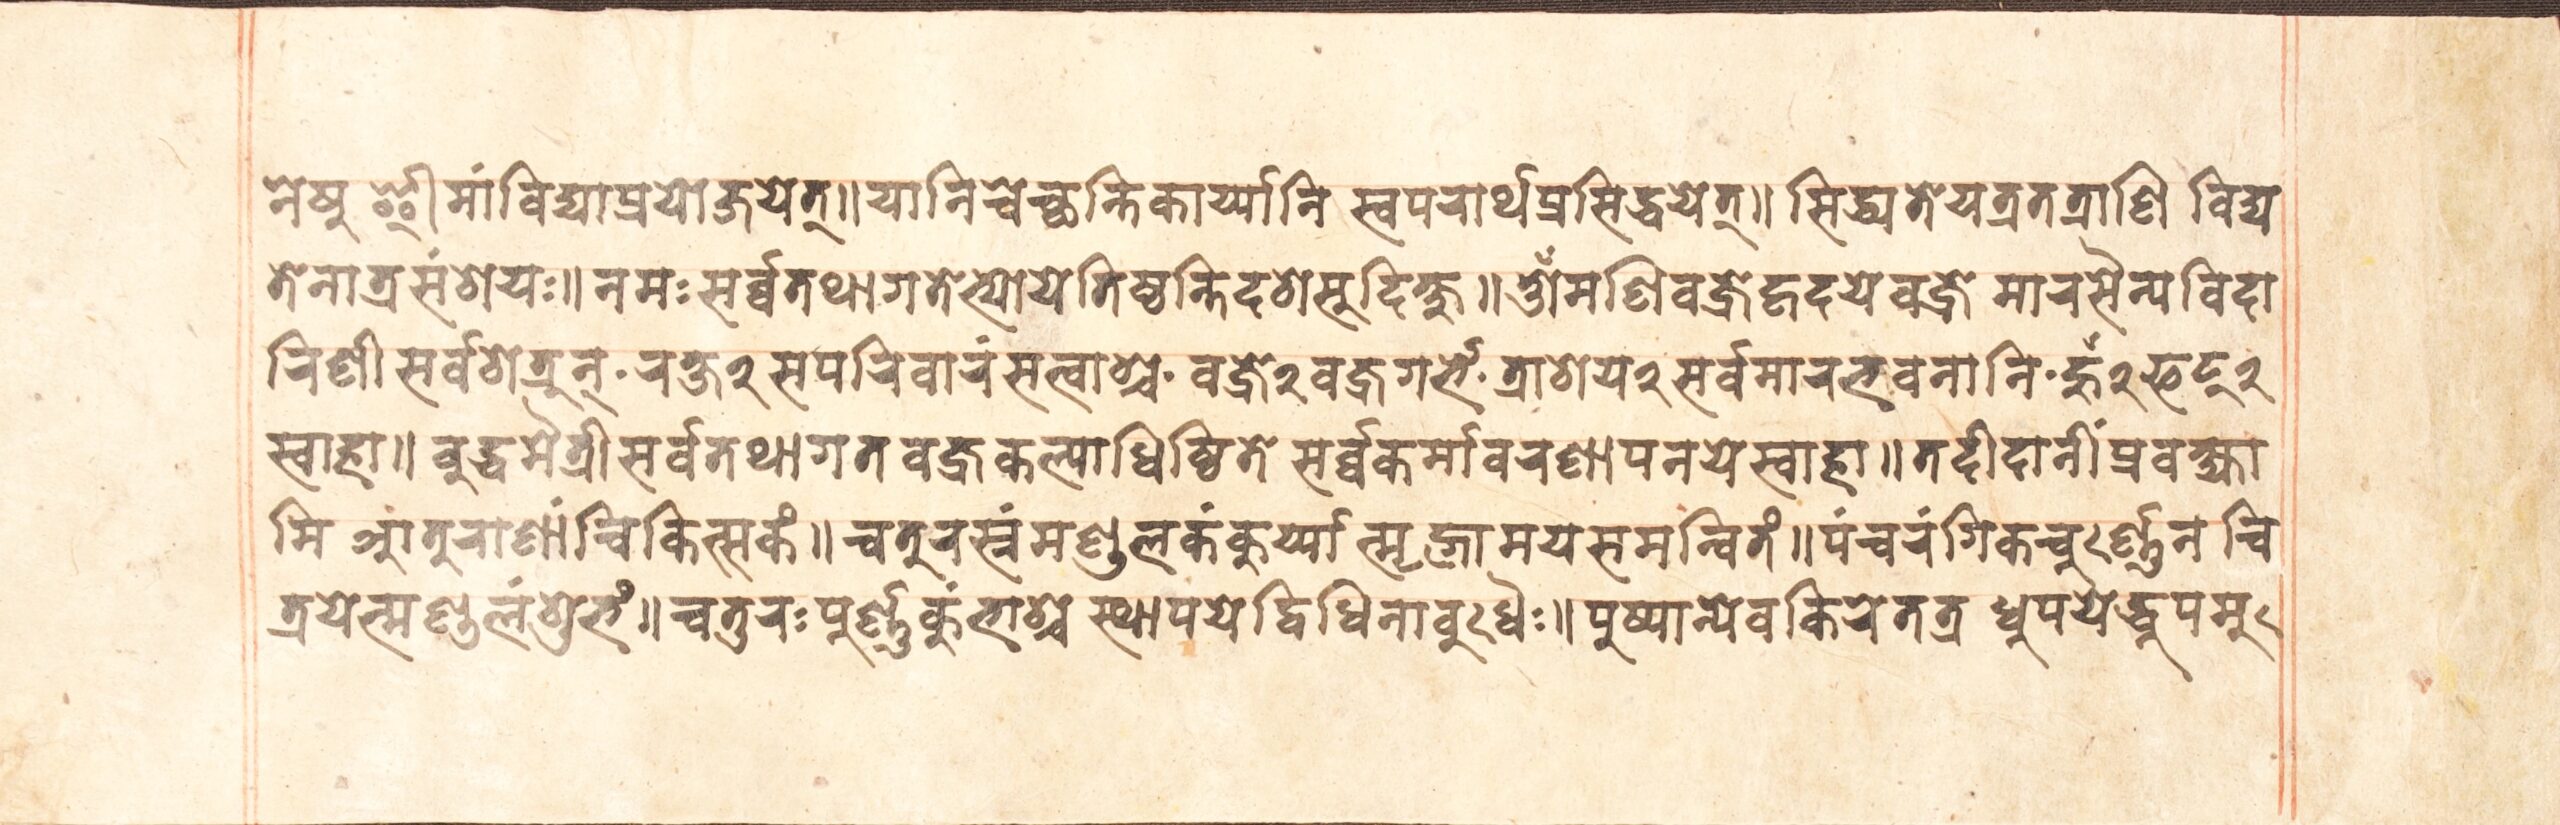 नेषु ॐीमांविद्याप्रयोजयेत्॥यानिच्वेच्छन्तिकार्य्यानि स्वपरार्थप्रसिद्धयेत्॥ सिद्ध्यतेयत्रतत्राणि विद्य
तेनात्रसंशयः॥नमःसर्व्वतथागतेभ्योयेतिष्ठन्तिदशसुदिक्षु॥ॐमणिवज्रेहृदयेवज्रे मारसैन्यविदा
रिणीसर्वशत्रून्॰रक्ष२सपरिवारंसत्वाश्च॰वज्रे२वज्रगर्भे॰त्राशय२सर्वमारभवनानि॰हूँ२फट्२
स्वाहा॥बुद्धमैत्रीसर्वतथागतवज्रकल्पाधिष्ठिते सर्व्वकर्मावरणापनयेस्वाहा॥तदीदानींप्रवक्ष्या
मि आतुराणांचिकित्सकं॥चतुरस्नंमण्डलकंकुर्य्यात्मृद्गामयसमन्वितं॥पंचरंगिकचुर्ण्णेन चि
त्रयेत्मण्डलंशुभं॥चतुरःपूर्ण्णकुंभाश्च स्थापयेद्विधिनाबुधैः॥पुष्पान्येवकिरेतत्र धुपयेद्धुपमु